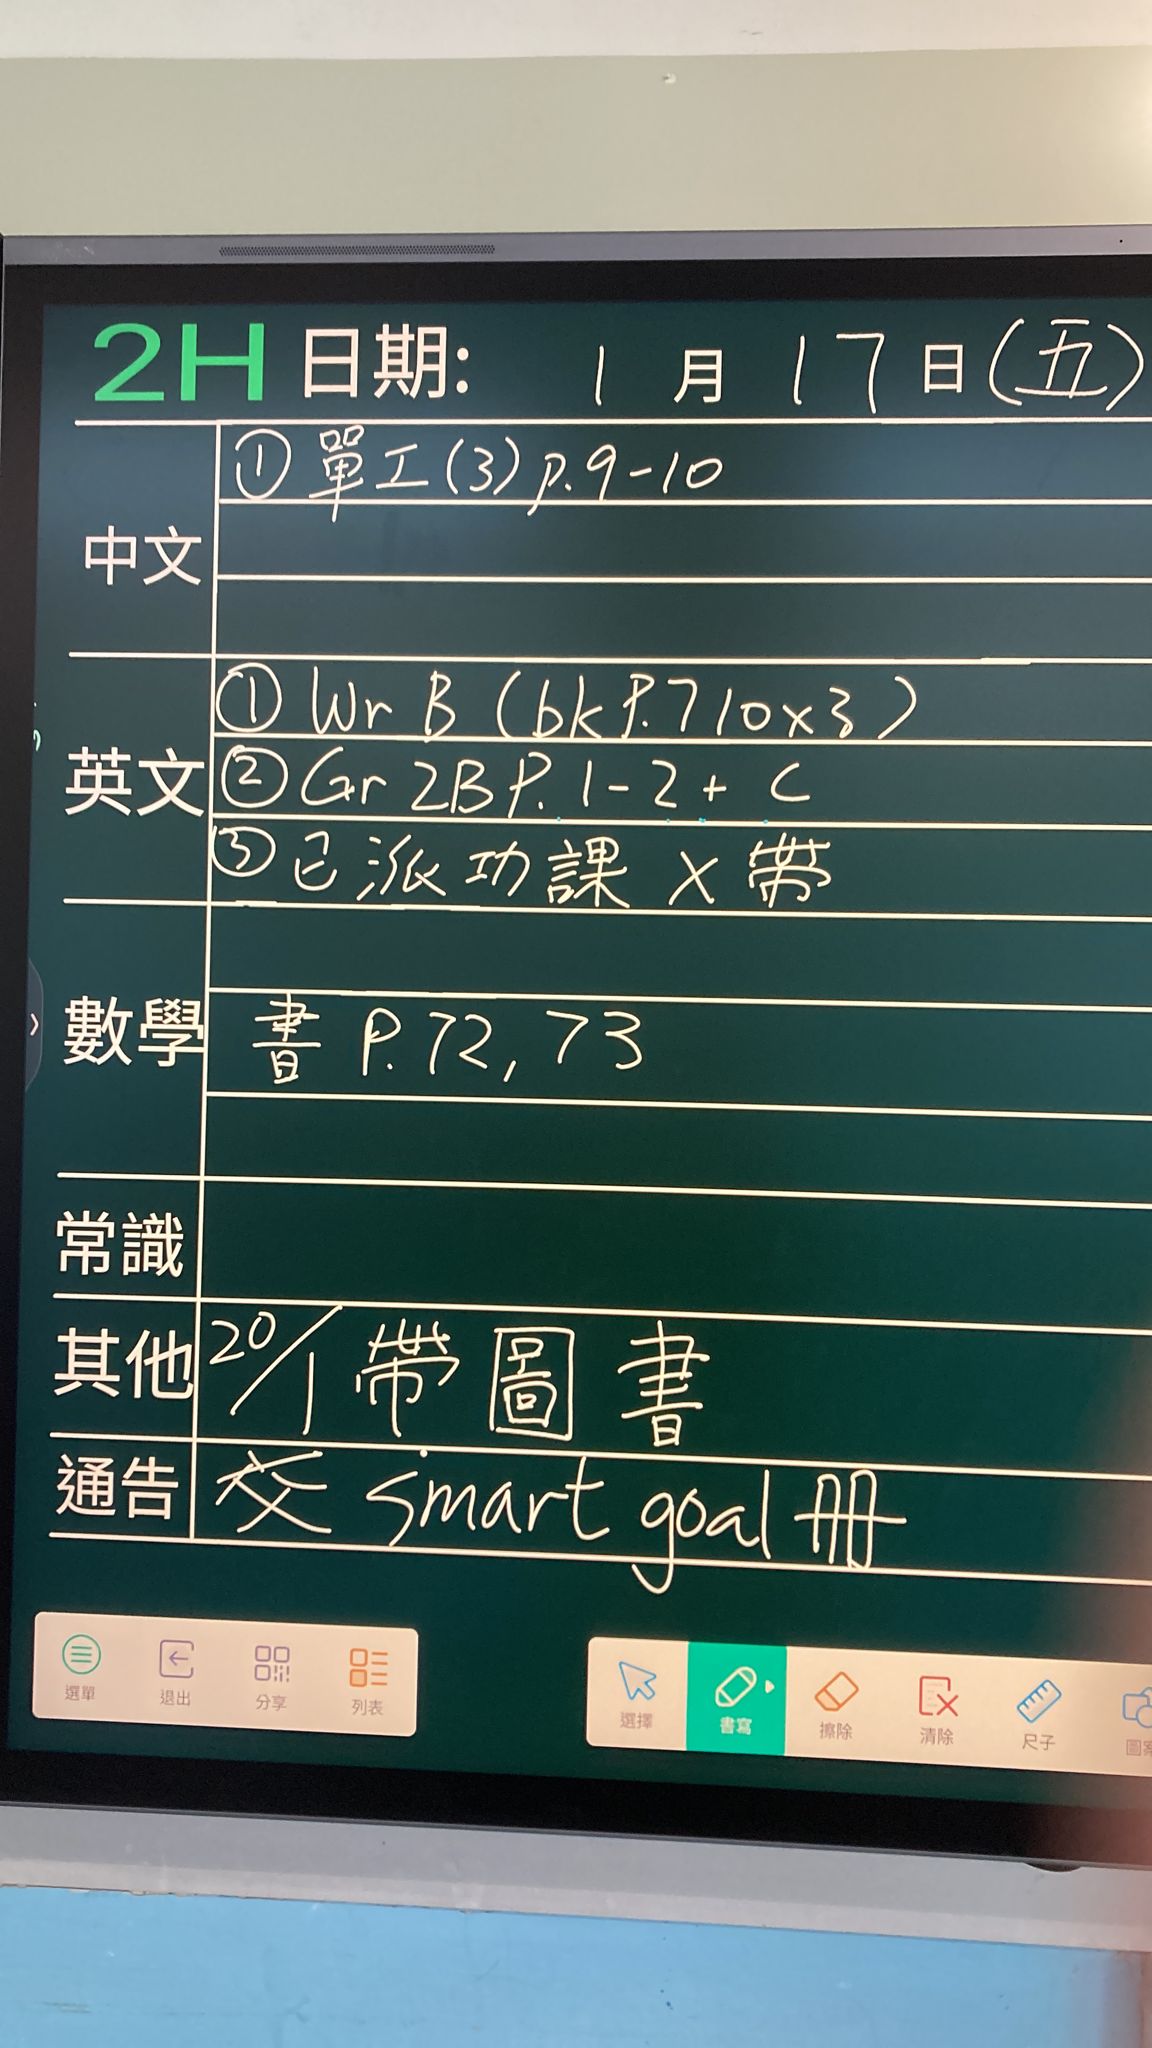 2H 日期: 1 月 17 日 (五)
中文
① 單工(3) p.9-10
英文
① Wr B (bk P.7 10x3)
② Gr 2B P. 1-2 + C
③ 已派功課 X 帶
數學
書 P.72, 73
常識
其他
20/1 帶圖書
通告
交 smart goal 冊
選單 退出 分享 列表
選擇 書寫 擦除 清除 尺子 圖案